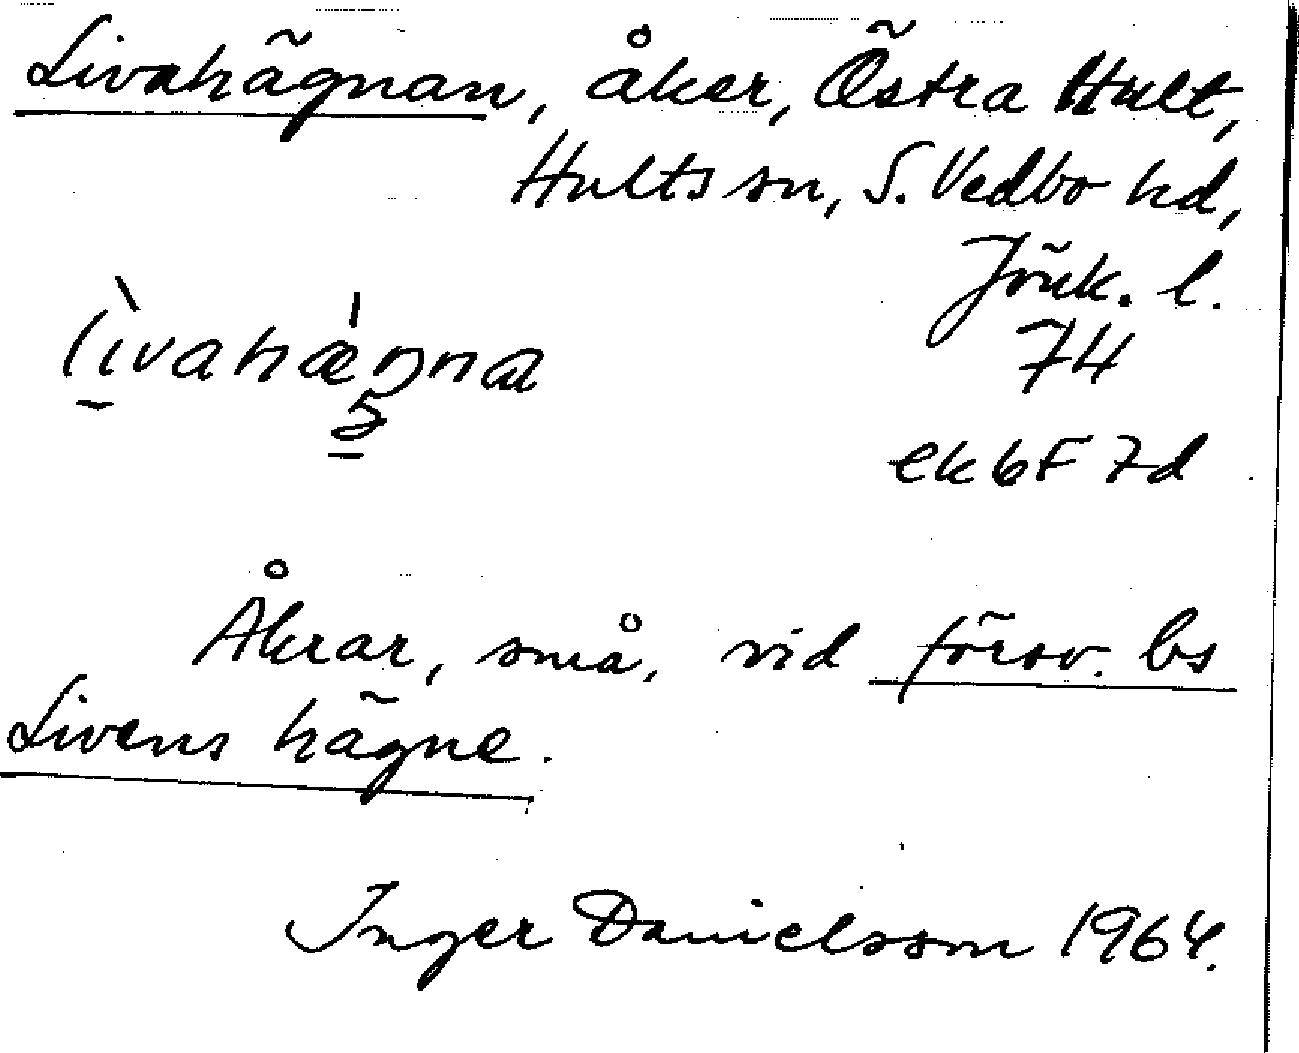 Livahägnan, åker, Östra Hult,
Hults sn, S. Vedbo hd,
Jönk. l.
74
ek 6F 7d
Åkrar, små, vid försv. bs
Livens hägne.
Inger Danielsson 1964.